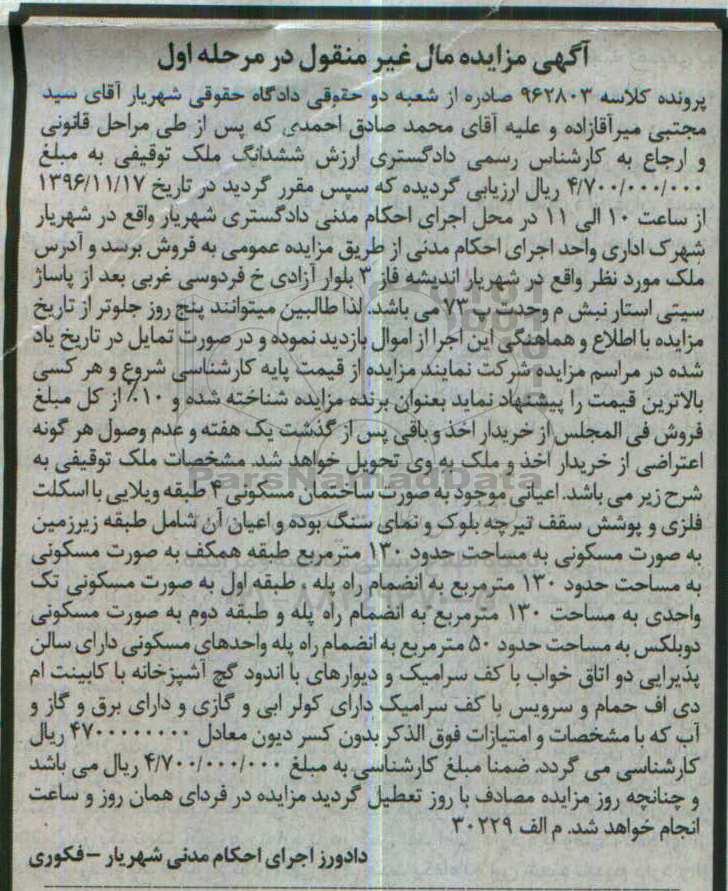 آگهی مزایده مال غیر منقول در مرحله اول
پرونده کلاسه ۹۶۲۸۰۳ صادره از شعبه دو حقوقی دادگاه حقوقی شهریار آقای سید
مجتبی میرآقازاده و علیه آقای محمد صادق احمدی که پس از طی مراحل قانونی
و ارجاع به کارشناس رسمی دادگستری ارزش ششدانگ ملک توقیفی به مبلغ
۴/۷۰۰/۰۰۰/۰۰۰ ریال ارزیابی گردیده که سپس مقرر گردید در تاریخ ۱۳۹۶/۱۱/۱۷
از ساعت ۱۰ الی ۱۱ در محل اجرای احکام مدنی دادگستری شهریار واقع در شهریار
شهرک اداری واحد اجرای احکام مدنی از طریق مزایده عمومی به فروش برسد و آدرس
ملک مورد نظر واقع در شهریار اندیشه فاز ۳ بلوار آزادی خ فردوسی غربی بعد از پاساژ
سیتی استار نبش م وحدت پ ۷۳ می باشد. لذا طالبین میتوانند پنج روز جلوتر از تاریخ
مزایده با اطلاع و هماهنگی این اجرا از اموال بازدید نموده و در صورت تمایل در تاریخ یاد
شده در مراسم مزایده شرکت نمایند مزایده از قیمت پایه کارشناسی شروع و هر کسی
بالاترین قیمت را پیشنهاد نماید بعنوان برنده مزایده شناخته شده و ۱۰٪ از کل مبلغ
فروش فی المجلس از خریدار اخذ و باقی پس از گذشت یک هفته و عدم وصول هر گونه
اعتراضی از خریدار اخذ و ملک به وی تحویل خواهد شد. مشخصات ملک توقیفی به
شرح زیر می باشد. اعیانی موجود به صورت ساختمان مسکونی ۴ طبقه ویلایی با اسکلت
فلزی و پوشش سقف تیرچه بلوک و نمای سنگ بوده و اعیان آن شامل طبقه زیرزمین
به صورت مسکونی به مساحت حدود ۱۳۰ مترمربع طبقه همکف به صورت مسکونی
به مساحت حدود ۱۳۰ مترمربع به انضمام راه پله ، طبقه اول به صورت مسکونی تک
واحدی به مساحت ۱۳۰ مترمربع به انضمام راه پله و طبقه دوم به صورت مسکونی
دوبلکس به مساحت حدود ۵۰ مترمربع به انضمام راه پله واحدهای مسکونی دارای سالن
پذیرایی دو اتاق خواب با کف سرامیک و دیوارهای با اندود گچ آشپزخانه با کابینت ام
دی اف حمام و سرویس با کف سرامیک دارای کولر ابی و گازی و دارای برق و گاز و
آب که با مشخصات و امتیازات فوق الذکر بدون کسر دیون معادل ۴۷۰۰۰۰۰۰۰۰ ریال
کارشناسی می گردد. ضمنا مبلغ کارشناسی به مبلغ ۴/۷۰۰/۰۰۰/۰۰۰ ریال می باشد
و چنانچه روز مزایده مصادف با روز تعطیل گردید مزایده در فردای همان روز و ساعت
انجام خواهد شد. م الف ۳۰۲۲۹
دادورز اجرای احکام مدنی شهریار – فکوری
ParsNamadData